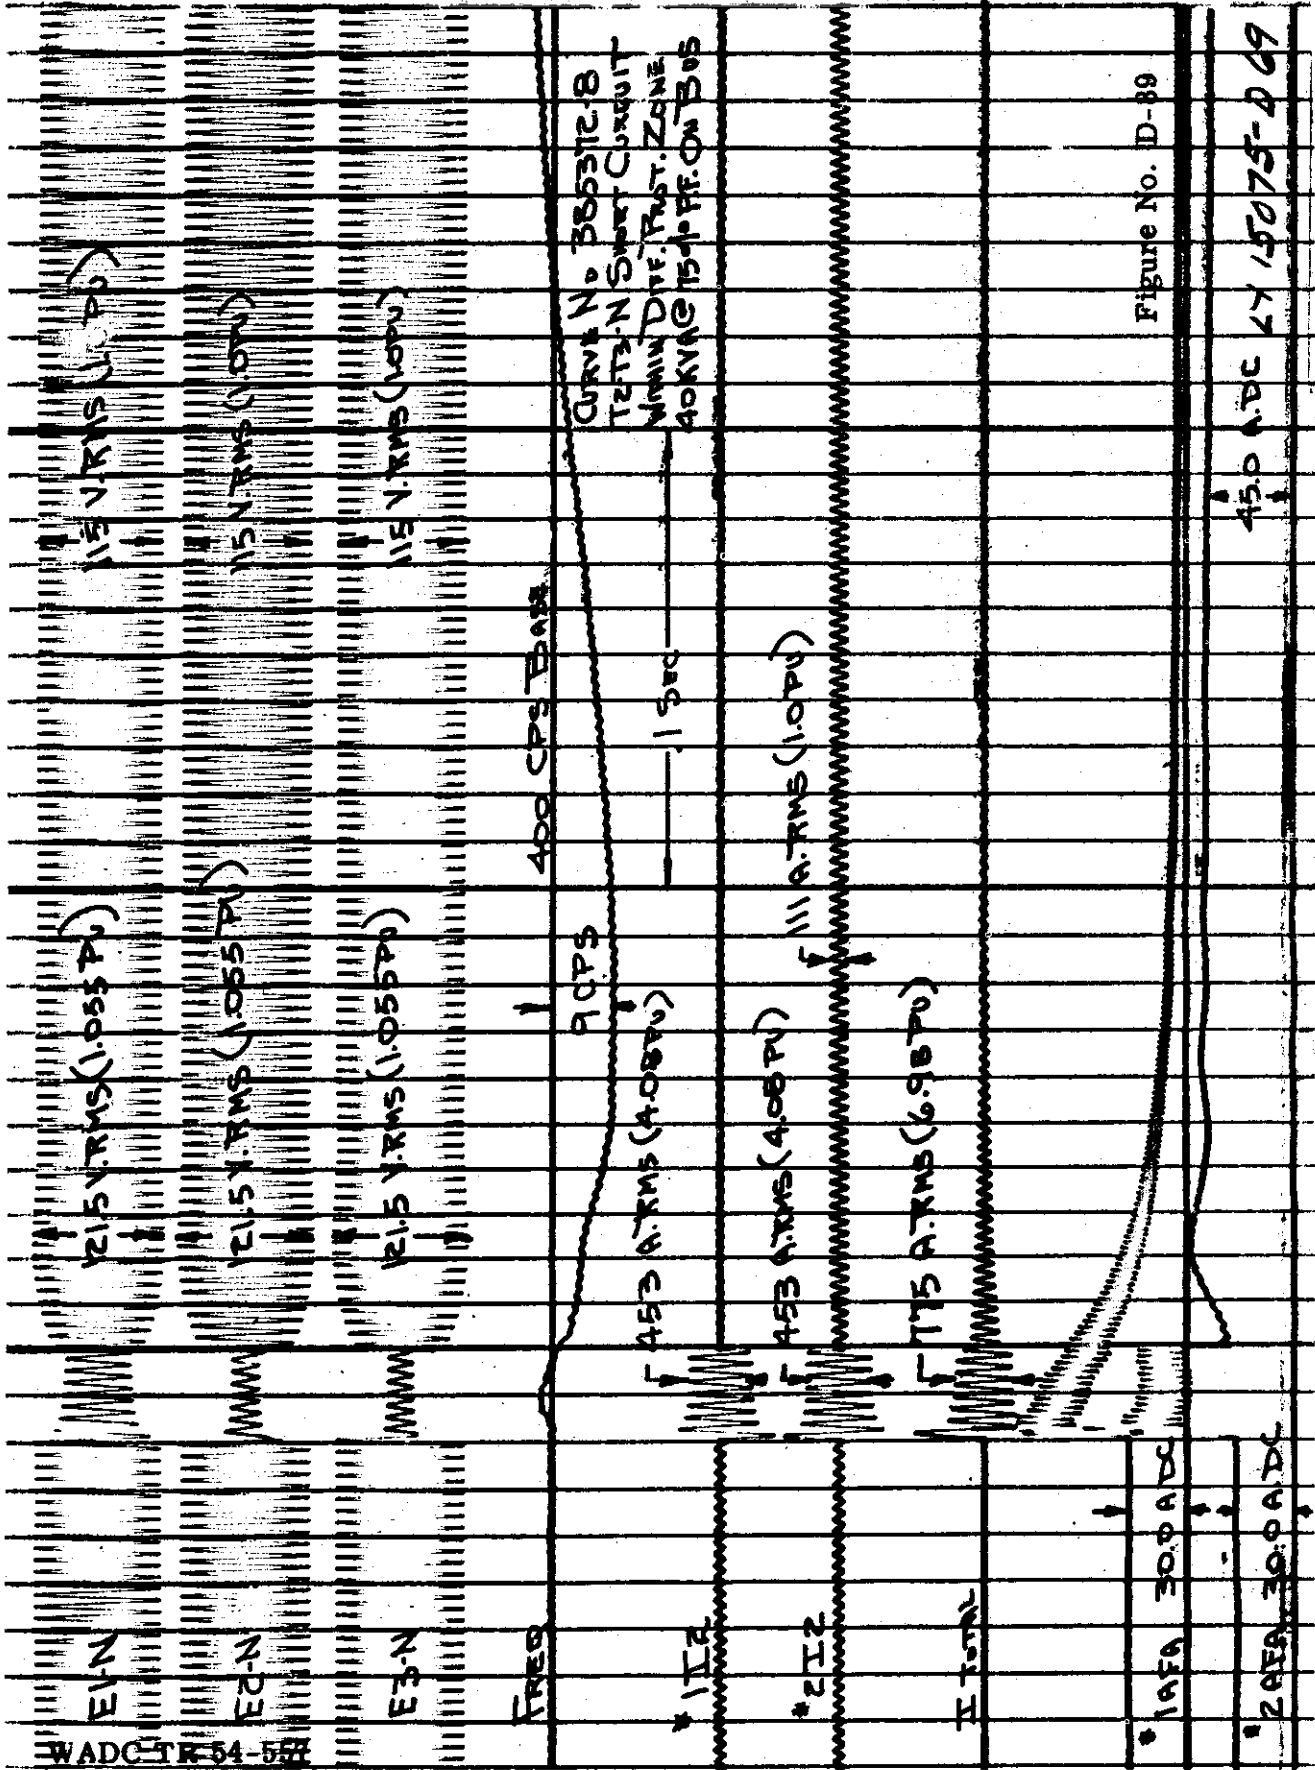 E1-N
121.5 V.RMS (1.055 PU)
115 V.RMS (1.0 PU)
E2-N
121.5 V.RMS (1.055 PU)
115 V.RMS (1.0PU)
E3-N
121.5 V.RMS (1.055 PU)
115 V.RMS (1.0PU)
FREQ
400 CPS BASE
9 CPS
CURVE NO 385372-B
T2-T3-N SHORT CIRCUIT
WITHIN DIFF. PROT. ZONE
40KVA@75% PF. ON BUS
.1 SEC
#1I2
453 A.RMS (4.08PU)
#2I2
453 A.RMS (4.08 PU)
111 A.RMS (1.0PU)
I TOTAL
775 A.RMS (6.98 PU)
Figure No. ID-89
#1AFA 30.0 A DC
#2AFA 30.0 A DC
45.0 A.DC
LY 15075-D 69
WADC TR 54-557